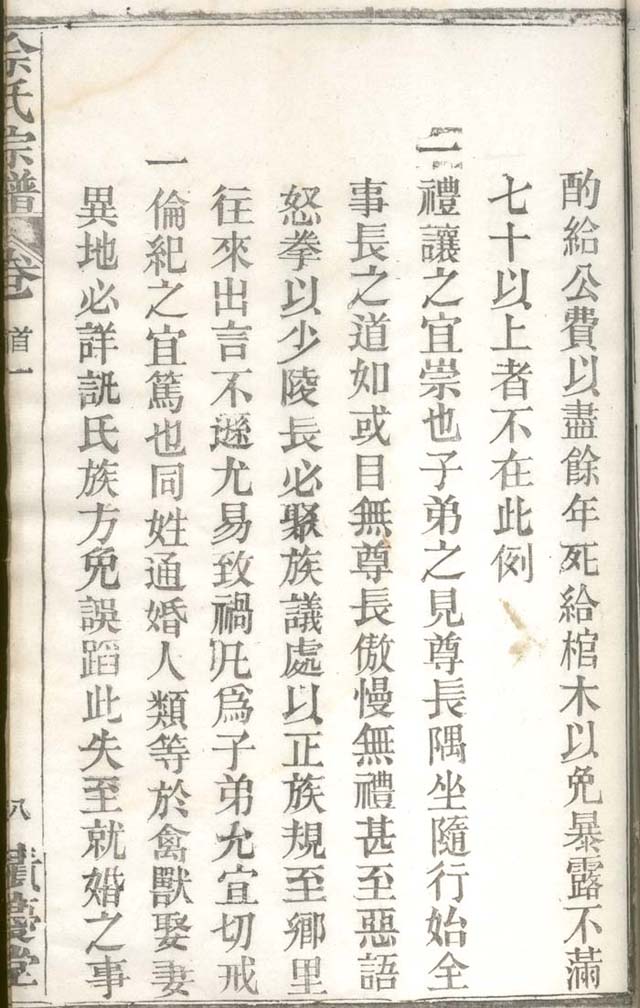 酌給公費以盡餘年死給棺木以免暴露不滿
七十以上者不在此例
一禮讓之宜崇也子弟之見尊長隅坐隨行始全
事長之道如或目無尊長傲慢無禮甚至惡語
怒拳以少陵長必聚族議處以正族規至鄉里
往來出言不遜尤易致禍凡爲子弟尤宜切戒
一倫紀之宜篤也同姓通婚人類等於禽獸娶妻
異地必詳詵氏族方免誤蹈此失至就婚之事
余氏宗譜
卷首一
八
堂